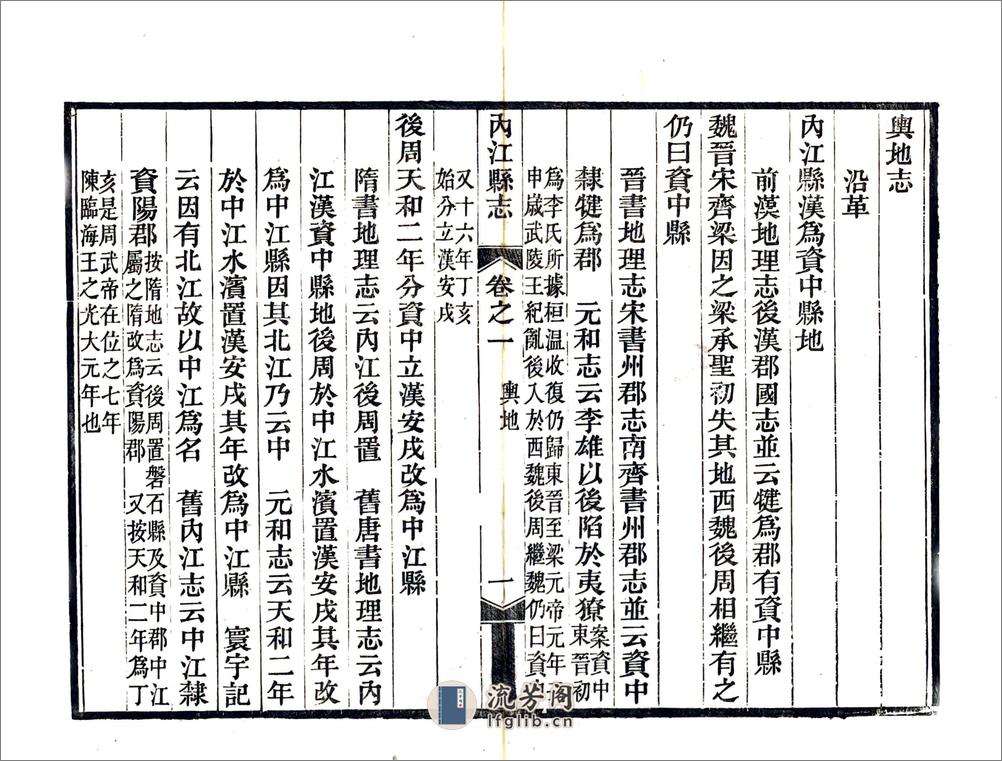 輿地志
沿革
內江縣漢爲資中縣地
前漢地理志後漢郡國志並云犍爲郡有資中縣
魏晉宋齊梁因之梁承聖初失其地西魏後周相繼有之
仍曰資中縣
晉書地理志宋書州郡志南齊書州郡志並云資中
隸犍爲郡　元和志云李雄以後陷於夷獠案資中
東晉初
爲李氏所據桓温收復仍歸東晉至梁元帝元年
申歲武陵王紀亂後入於西魏後周繼魏仍曰資
又十六年丁亥
始分立漢安戌
內江縣志　卷之一　輿地　一
後周天和二年分資中立漢安戌改爲中江縣
隋書地理志云內江後周置　舊唐書地理志云內
江漢資中縣地後周於中江水濱置漢安戌其年改
爲中江縣因其北江乃云中　元和志云天和二年
於中江水濱置漢安戌其年改爲中江縣　寰宇記
云因有北江故以中江爲名　舊內江志云中江隸
資陽郡按隋地志云後周置磐石縣及資中郡中江
屬之隋改爲資陽郡　又按天和二年爲丁
亥是周武帝在位之七年
陳臨海王之光大元年也
流芳阁
lfglib.cn